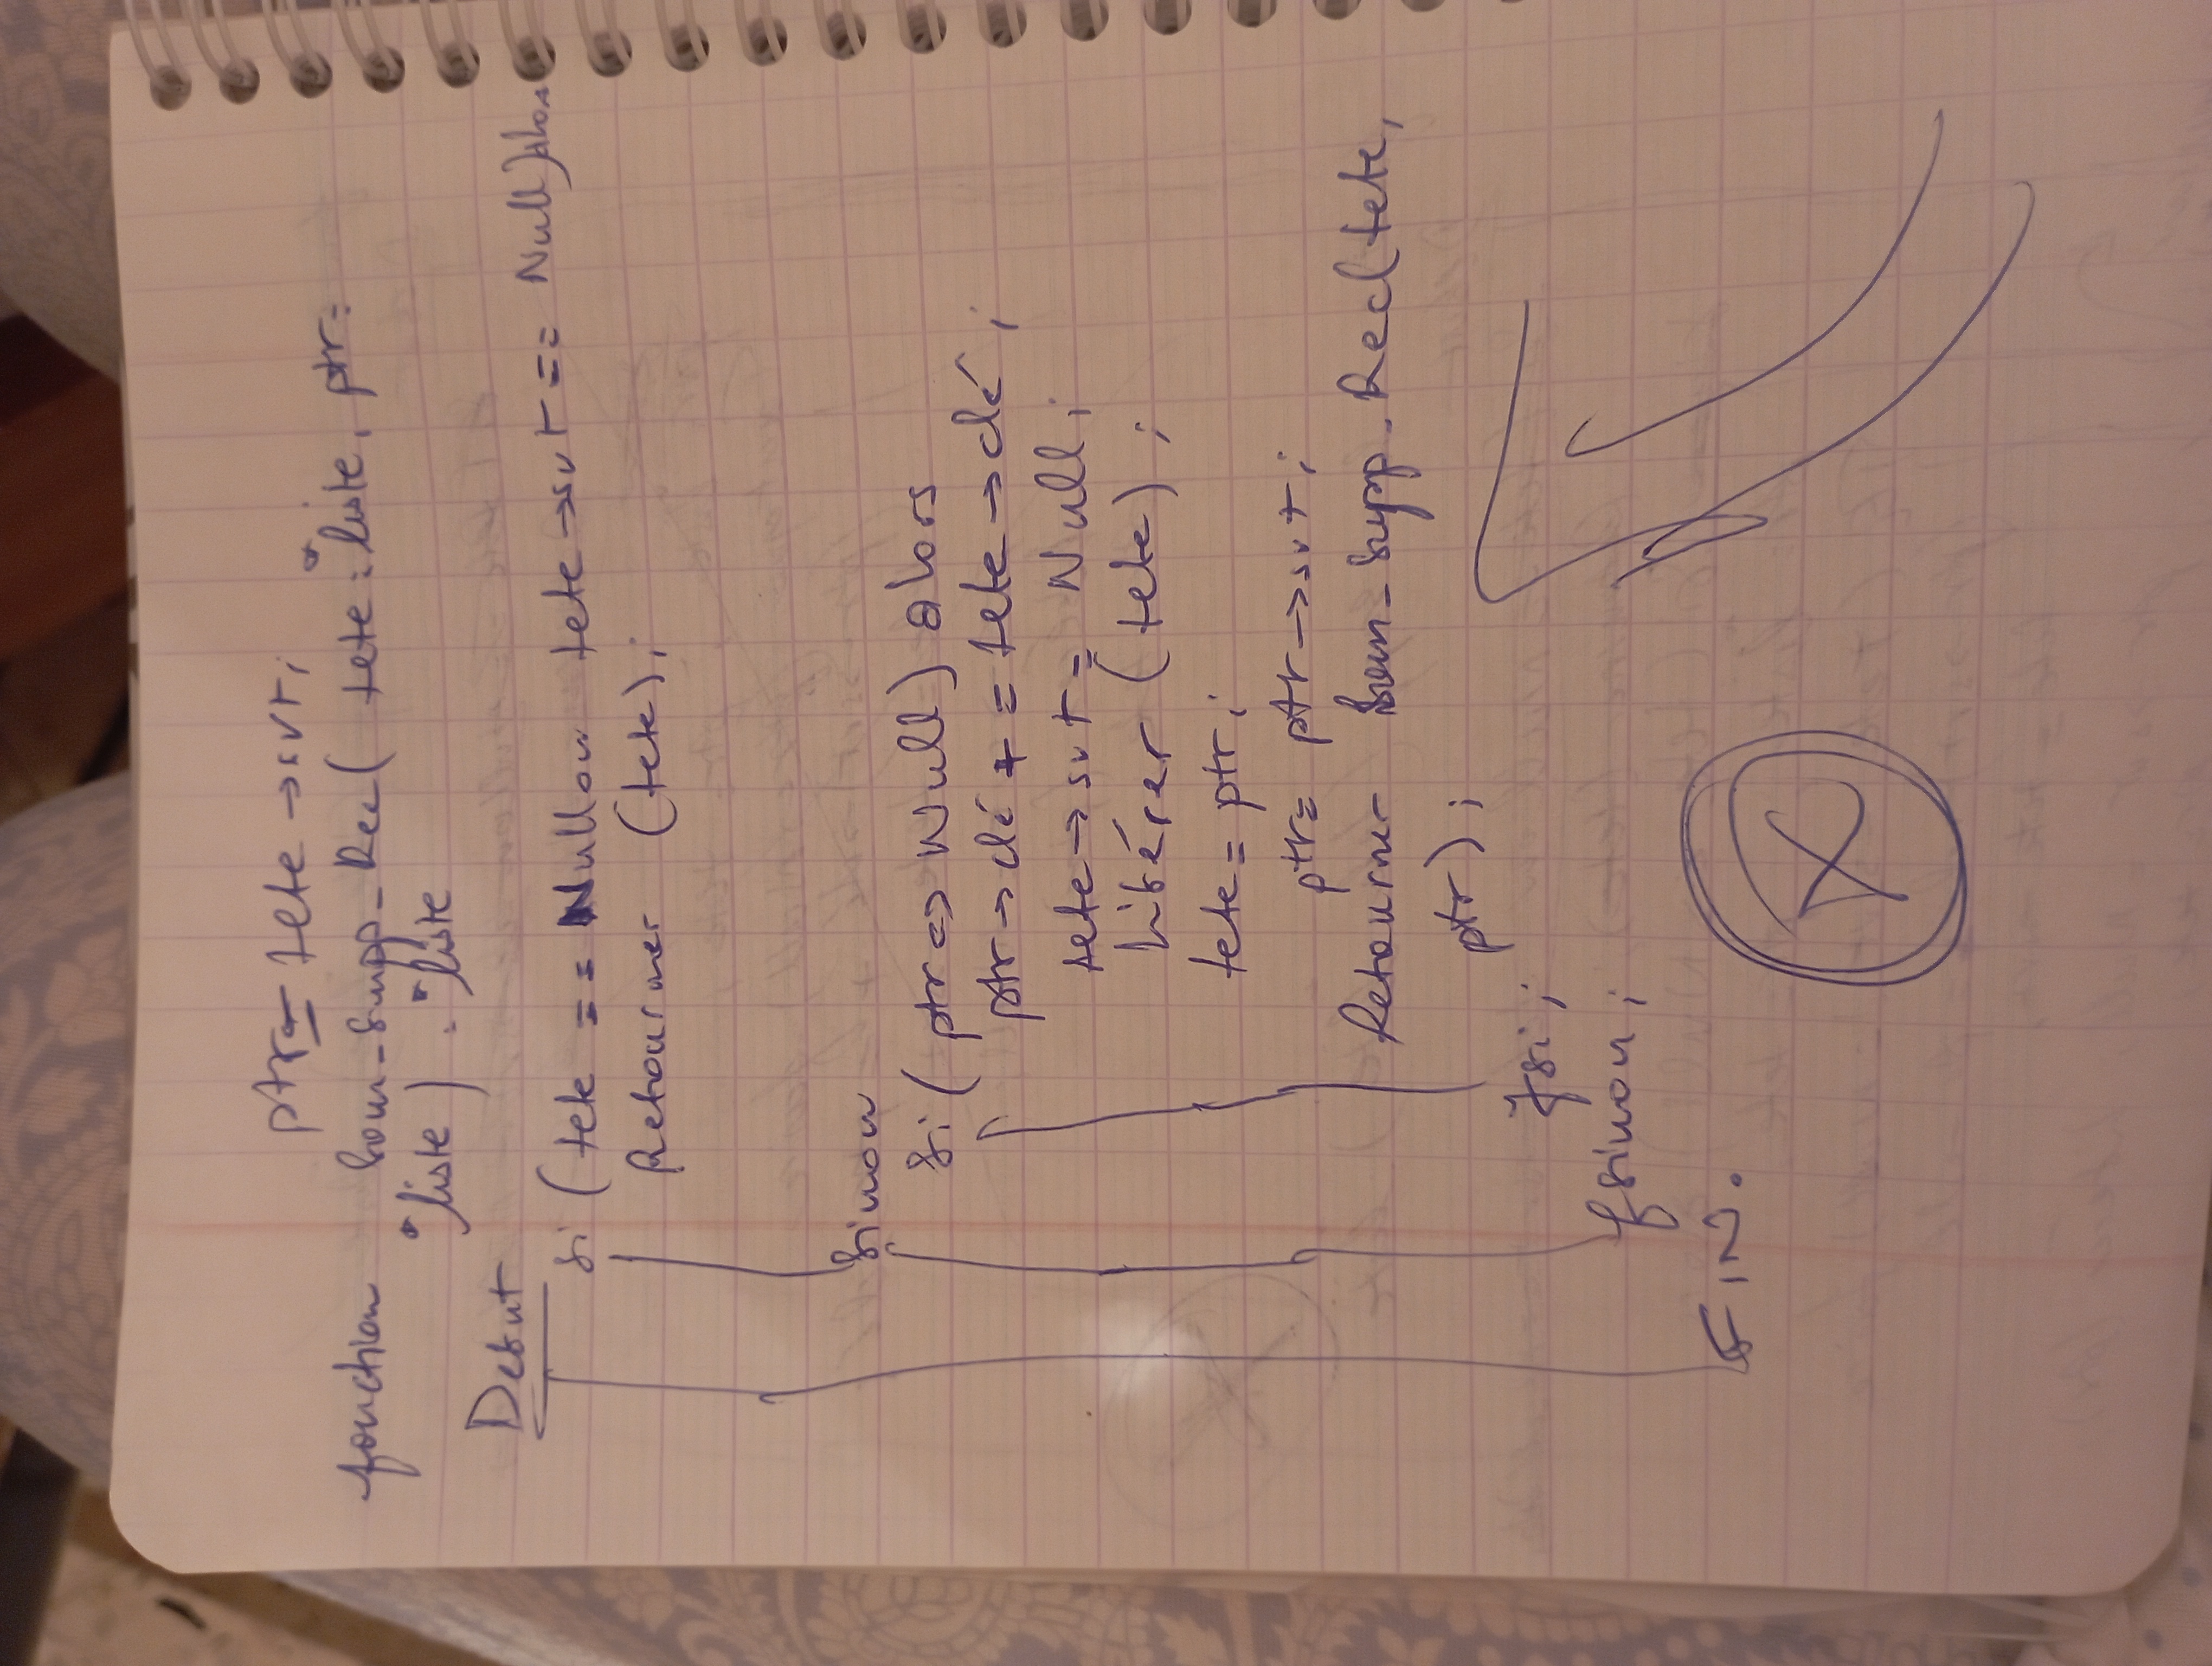 ptr = tete → svt;
fonction som_supp_Rec( tete: *liste, ptr:
*liste) : *liste
Debut
si (tete == Null ou tete → svt == Null) alors
Retourner (tete);
sinon
si (ptr <> Null) alors
ptr → clé + = tete → clé;
tete → svt = Null;
libérer (tete);
tete = ptr;
ptr = ptr → svt;
Retourner som_supp_Rec(tete,
ptr);
fsi;
fsinon;
FIN.